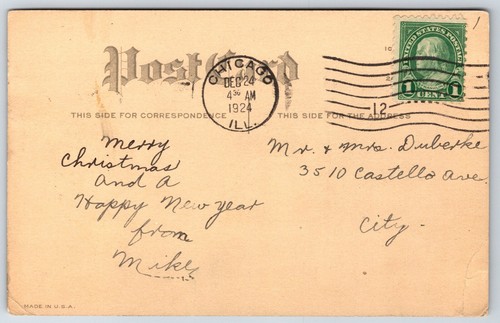 Post Card
CHICAGO
DEC 24
4 30 AM
1924
ILL.
UNITED STATES POSTAGE
1 1
CENT
12
THIS SIDE FOR CORRESPONDENCE
THIS SIDE FOR THE ADDRESS
Merry
Christmas
and a
Happy New year
from
Mike
Mr. & Mrs. Duberke
3510 Castello Ave.
City.
MADE IN U.S.A.